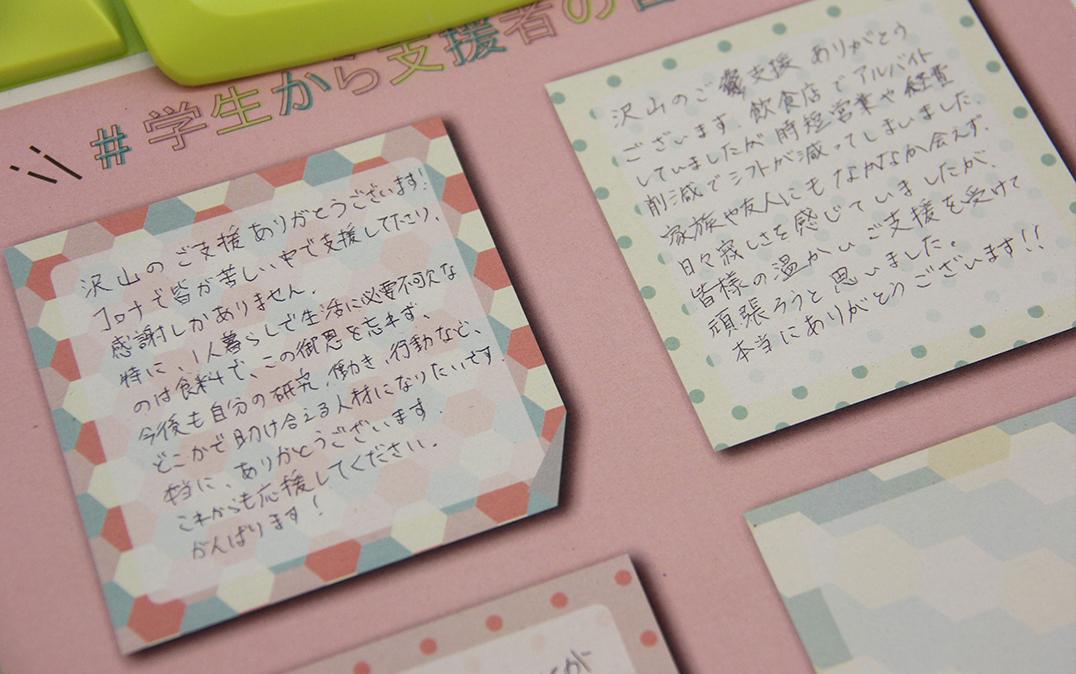 #学生から支援者の
沢山のご支援ありがとうございます!
コロナで皆が苦しい中で支援して下さり、
感謝しかありません。
特に、1人暮らしで生活に必要不可欠な
のは食料で、この御恩を忘れず、
今後も自分の研究、働き、行動など、
どこかで助け合える人材になりたいです。
本当に、ありがとうございます。
これからも応援してください。
がんばります!
沢山のご支援 ありがとう
ございます。飲食店でアルバイト
していましたが時短営業や経費
削減でシフトが減ってしまいました。
家族や友人にもなかなか会えず、
日々寂しさを感じていましたが、
皆様の温かいご支援を受けて
頑張ろうと思いました。
本当にありがとうございます!!